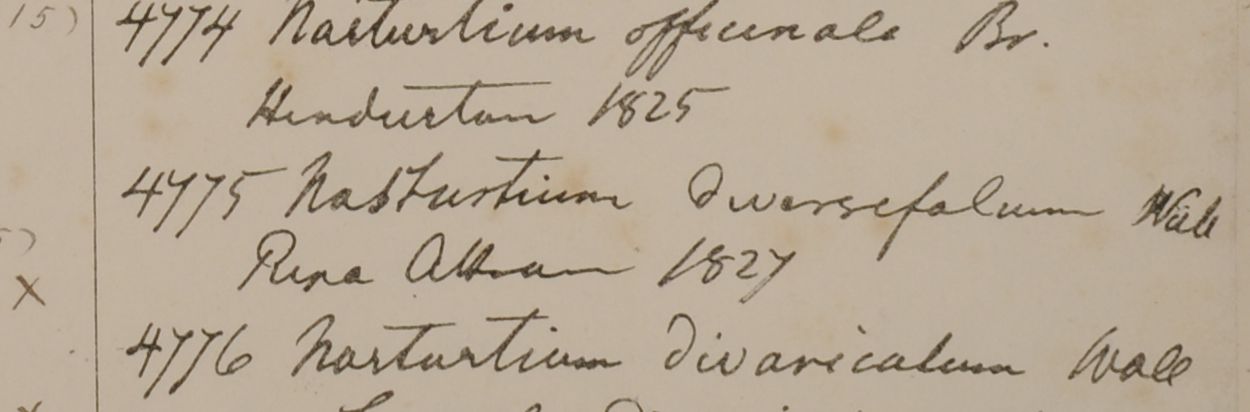 15)
4774 Nasturtium officinale Br.
Hindustan 1825
4775 Nasturtium diversifolium Wall
Ripa Attran 1827
X
4776 Nasturtium divaricatum Wall